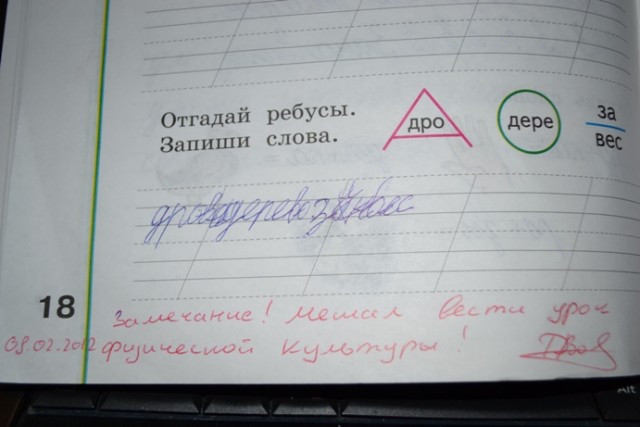 Отгадай ребусы.
Запиши слова.
дро
дере
за
вес
18
Замечание! Мешал вести урок
09.02.2012 физической культуры!